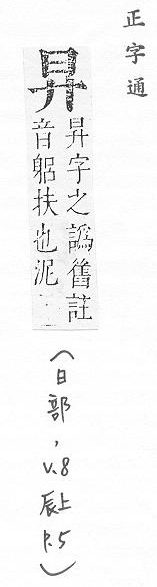 正字通
昇字之譌舊註
音躳扶也泥
(日部, v.8 辰上 p.5)